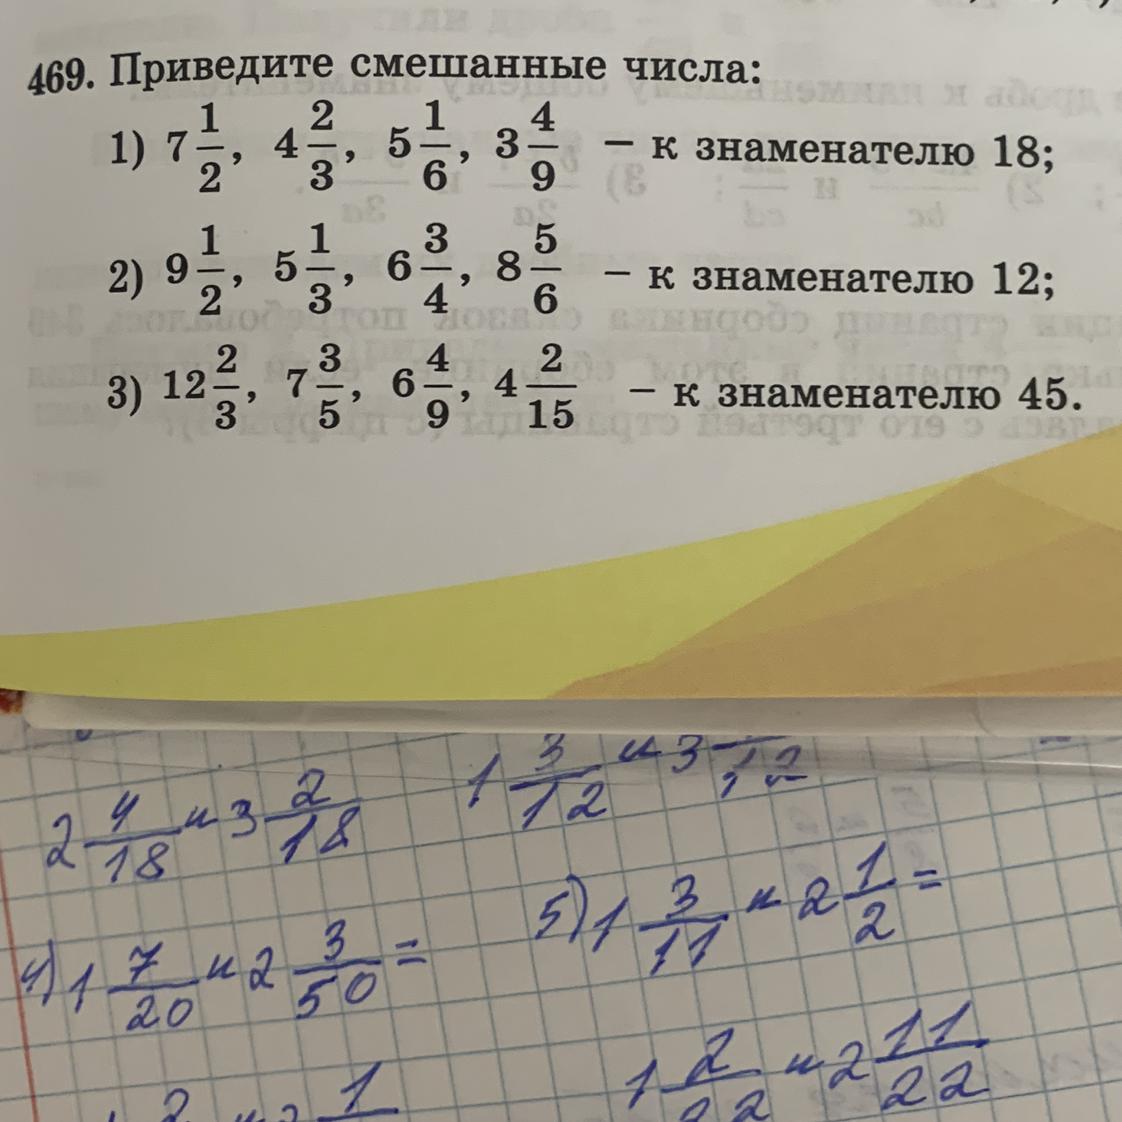 469. Приведите смешанные числа:
1) 7 1/2, 4 2/3, 5 1/6, 3 4/9 – к знаменателю 18;
2) 9 1/2, 5 1/3, 6 3/4, 8 5/6 – к знаменателю 12;
3) 12 2/3, 7 3/5, 6 4/9, 4 2/15 – к знаменателю 45.
2 4/18 и 3 2/18
1 3/12 и 3
4) 1 7/20 и 2 3/50 =
5) 1 3/11 и 2 1/2 =
и 2 11/22